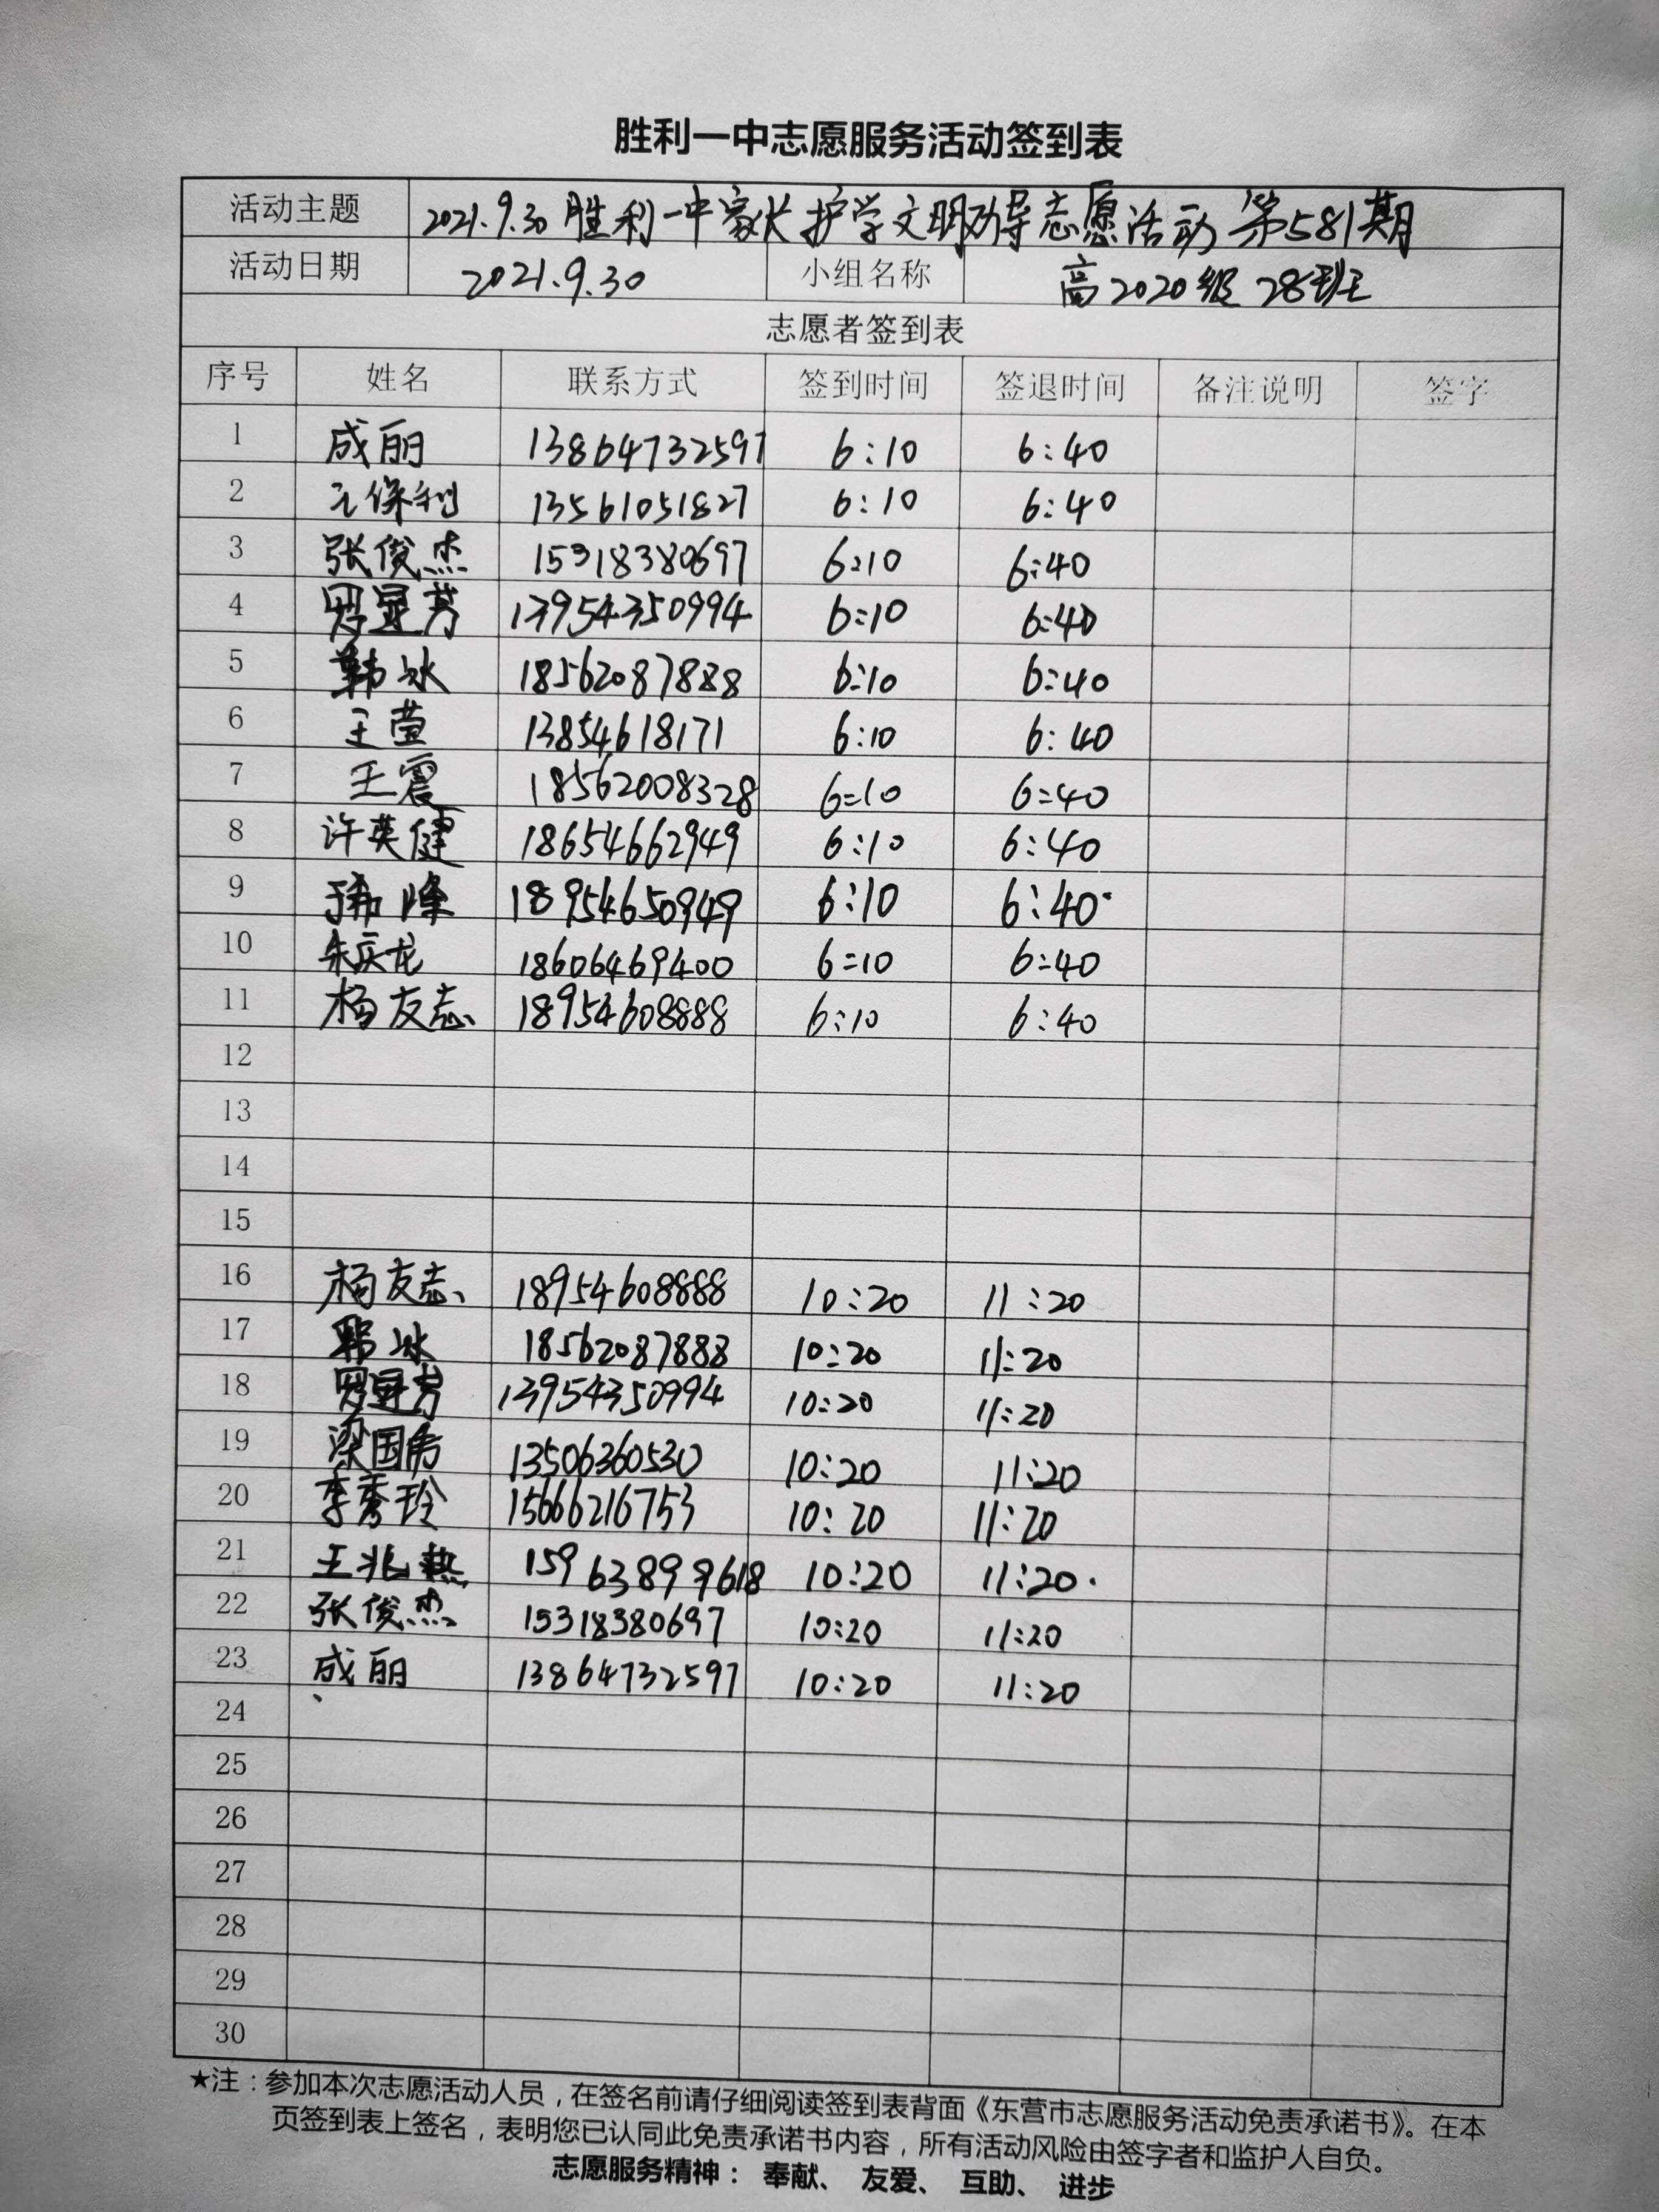 胜利一中志愿服务活动签到表
活动主题 2021.9.30 胜利一中家长护学文明劝导志愿活动 第581期
活动日期 2021.9.30 小组名称 高2020级 28班
志愿者签到表
序号 姓名 联系方式 签到时间 签退时间 备注说明 签字
1 成丽 13864732597 6:10 6:40
2 王保利 13561051827 6:10 6:40
3 张俊杰 15318380697 6:10 6:40
4 罗显芳 13954350994 6:10 6:40
5 韩冰 18562087888 6:10 6:40
6 王莹 13854618171 6:10 6:40
7 王震 18562008328 6:10 6:40
8 许英健 18654662949 6:10 6:40
9 18954650949 6:10 6:40
10 朱庆龙 18606469400 6:10 6:40
11 杨友志 18954608888 6:10 6:40
12
13
14
15
16 杨友志 18954608888 10:20 11:20
17 韩冰 18562087888 10:20 11:20
18 罗显芳 13954350994 10:20 11:20
19 梁国 13506360530 10:20 11:20
20 李秀玲 15666216753 10:20 11:20
21 王兆 15963899618 10:20 11:20
22 张俊杰 15318380697 10:20 11:20
23 成丽 13864732597 10:20 11:20
24
25
26
27
28
29
30
★注：参加本次志愿活动人员，在签名前请仔细阅读签到表背面《东营市志愿服务活动免责承诺书》。在本
页签到表上签名，表明您已认同此免责承诺书内容，所有活动风险由签字者和监护人自负。
志愿服务精神： 奉献、 友爱、 互助、 进步